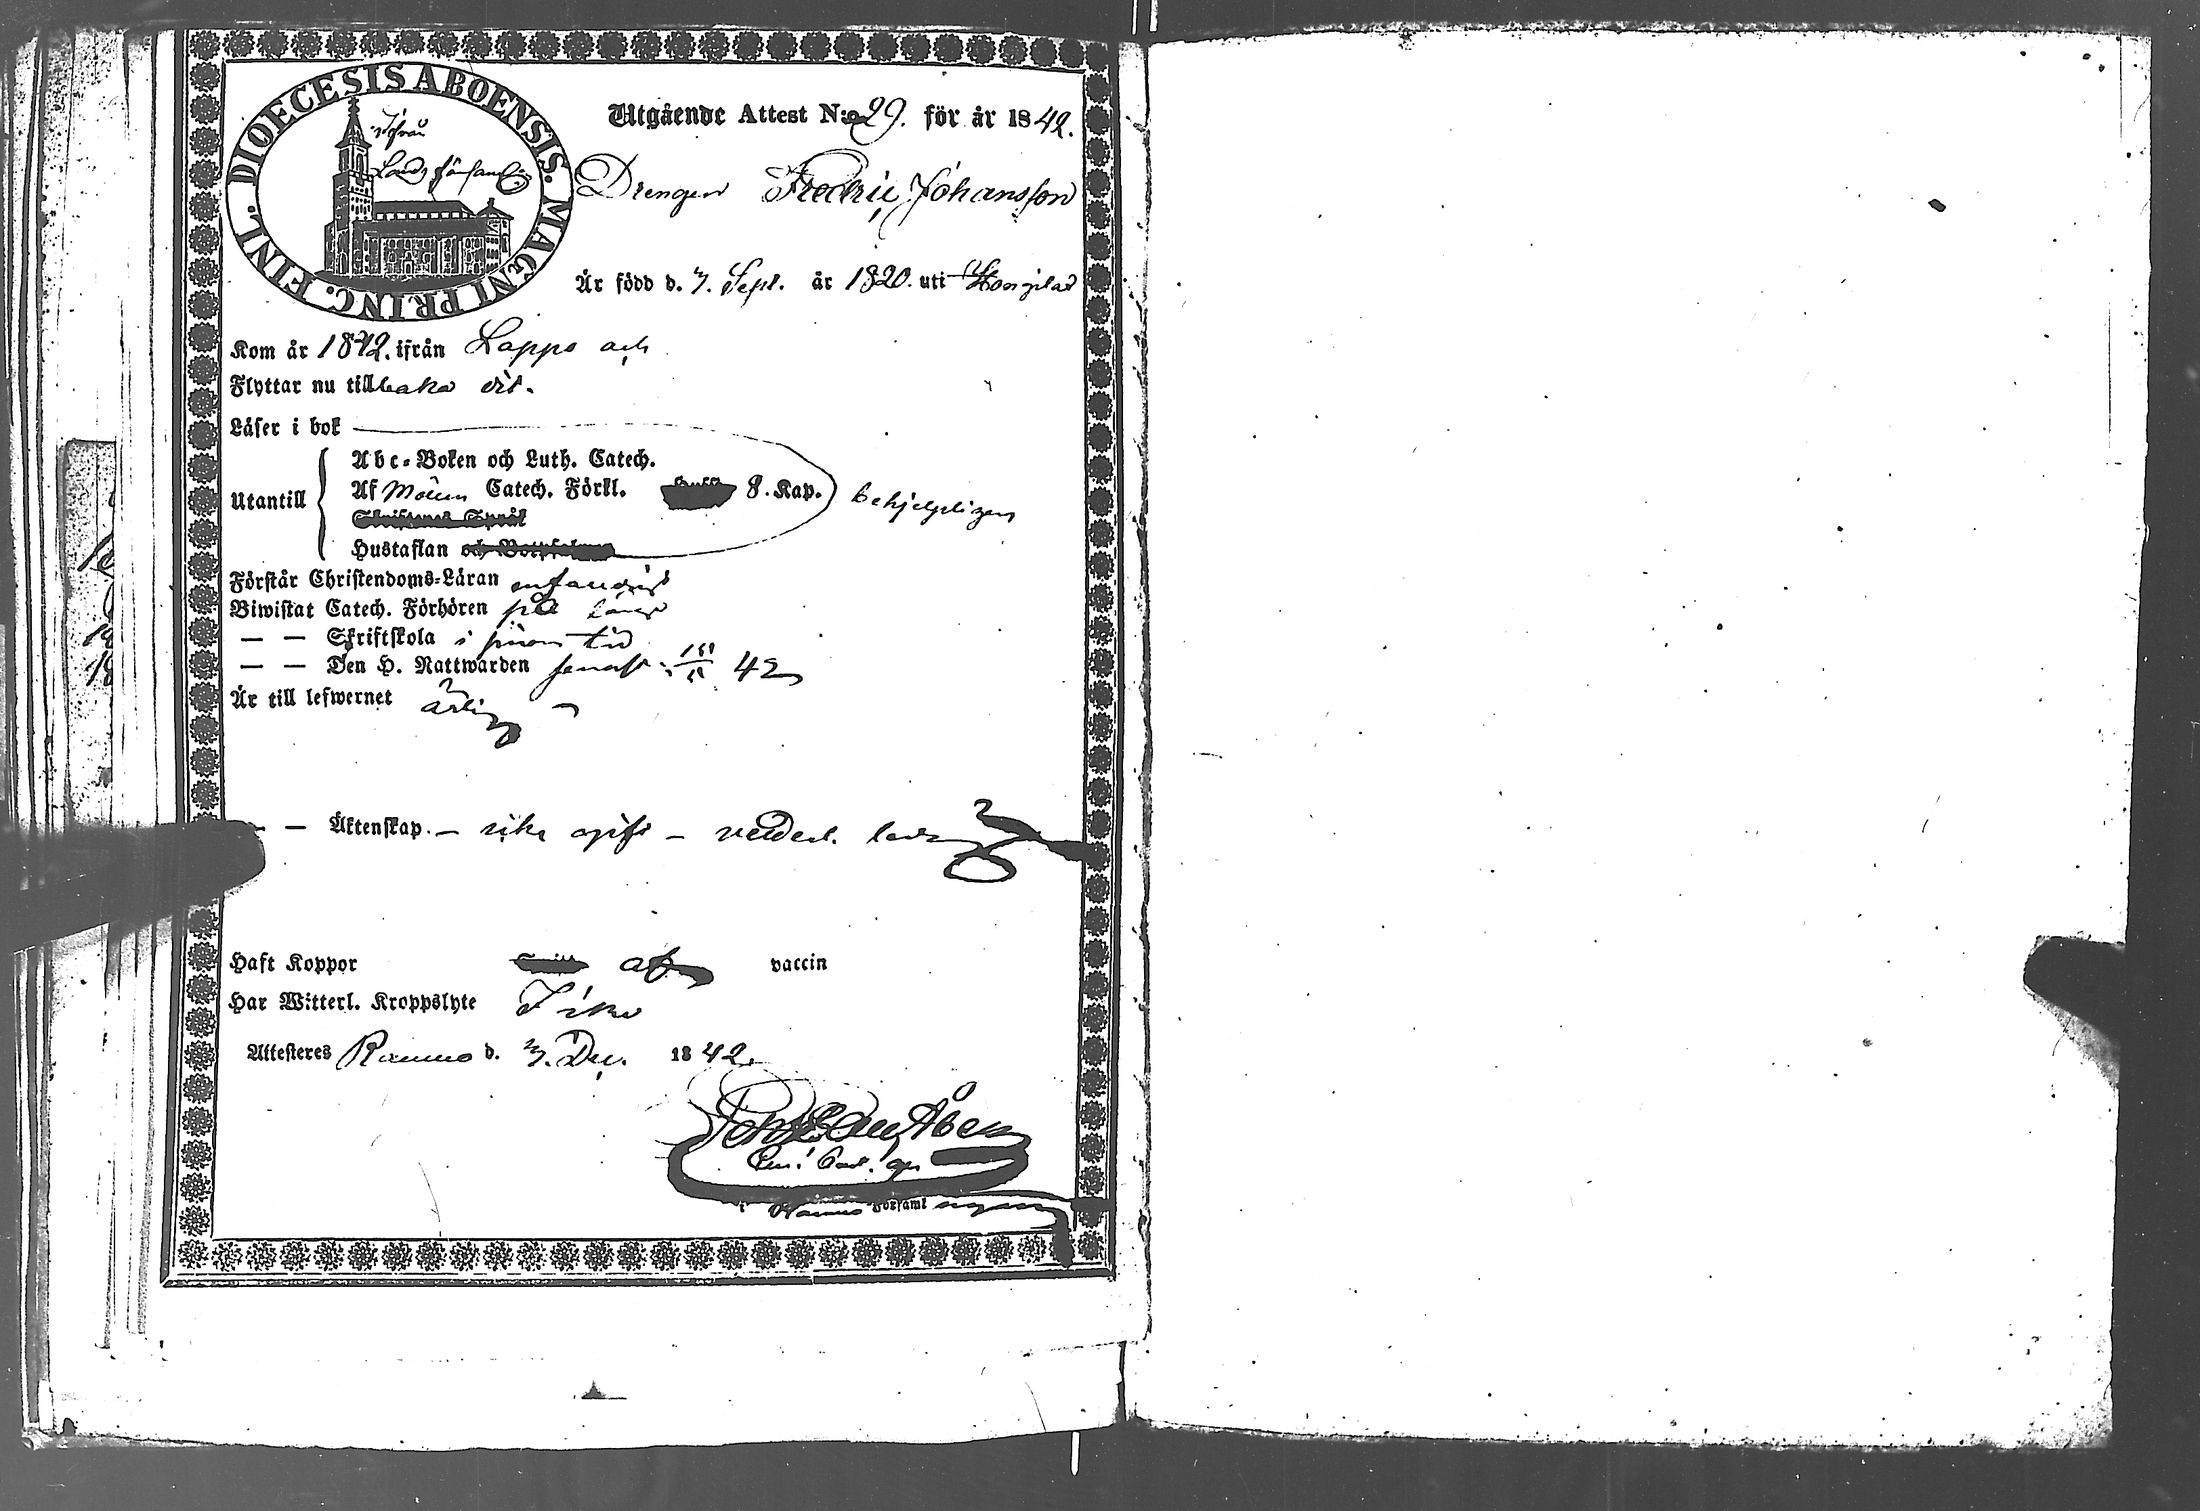 DIOECESIS ABOENSIS. MAGNI PRINC. FINL.
ifrån
Landsförsamlg
Utgående Attest N:o 29. för år 1842.
Drengen Fredric Johansson
Är född d. 7. Sept. år 1820. uti
Kom år 1842. ifrån Lappo och
Flyttar nu tillbaka dit.
Läser i bok
Utantill
Abc-Boken och Luth. Catech.
Af Möllers Catech. Förkl. 8. Kap. behjelpligen
Skriftenes Språk
Hustaflan och Botpsalmer
Förstår Christendoms-Läran enfaldigt
Biwistat Catech. Förhören på
— — Skriftskola i sinom tid
— — Den H. Nattwarden senast 42
Är till lefwernet ärlig
— — Äktenskap. — icke gift — vederb. ledig
Haft Koppor af vaccin
Har Witterl. Kroppslyte Icke
Attesteres Raumo d. 7. Dec. 1842.
Åberg
i Raumo Församl